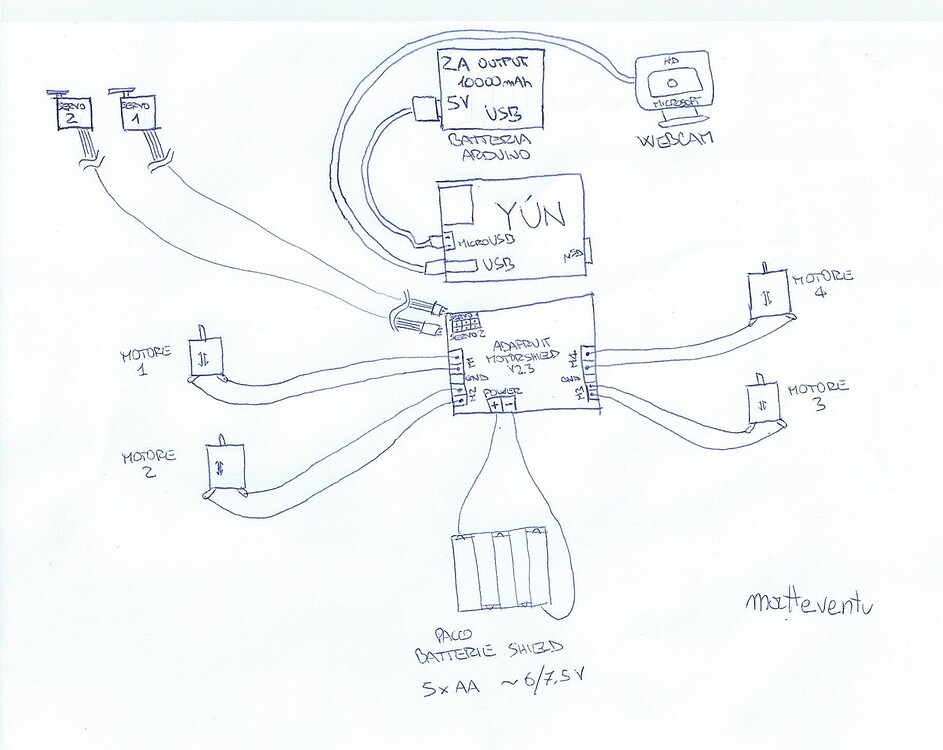 2A OUTPUT
10000mAh
5V
USB
BATTERIA
ARDUINO
HD
MICROSOFT
WEBCAM
SERVO
2
SERVO
1
YÚN
MICROUSB
USB
µSD
SERVO 1
SERVO 2
ADAFRUIT
MOTORSHIELD
V2.3
M1
GND
M2
M4
GND
M3
POWER
+ −
MOTORE
1
MOTORE
2
MOTORE
4
MOTORE
3
PACCO
BATTERIE SHIELD
5xAA ~6/7,5V
matteventu